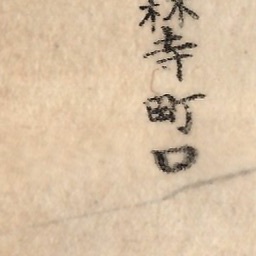 林寺町口